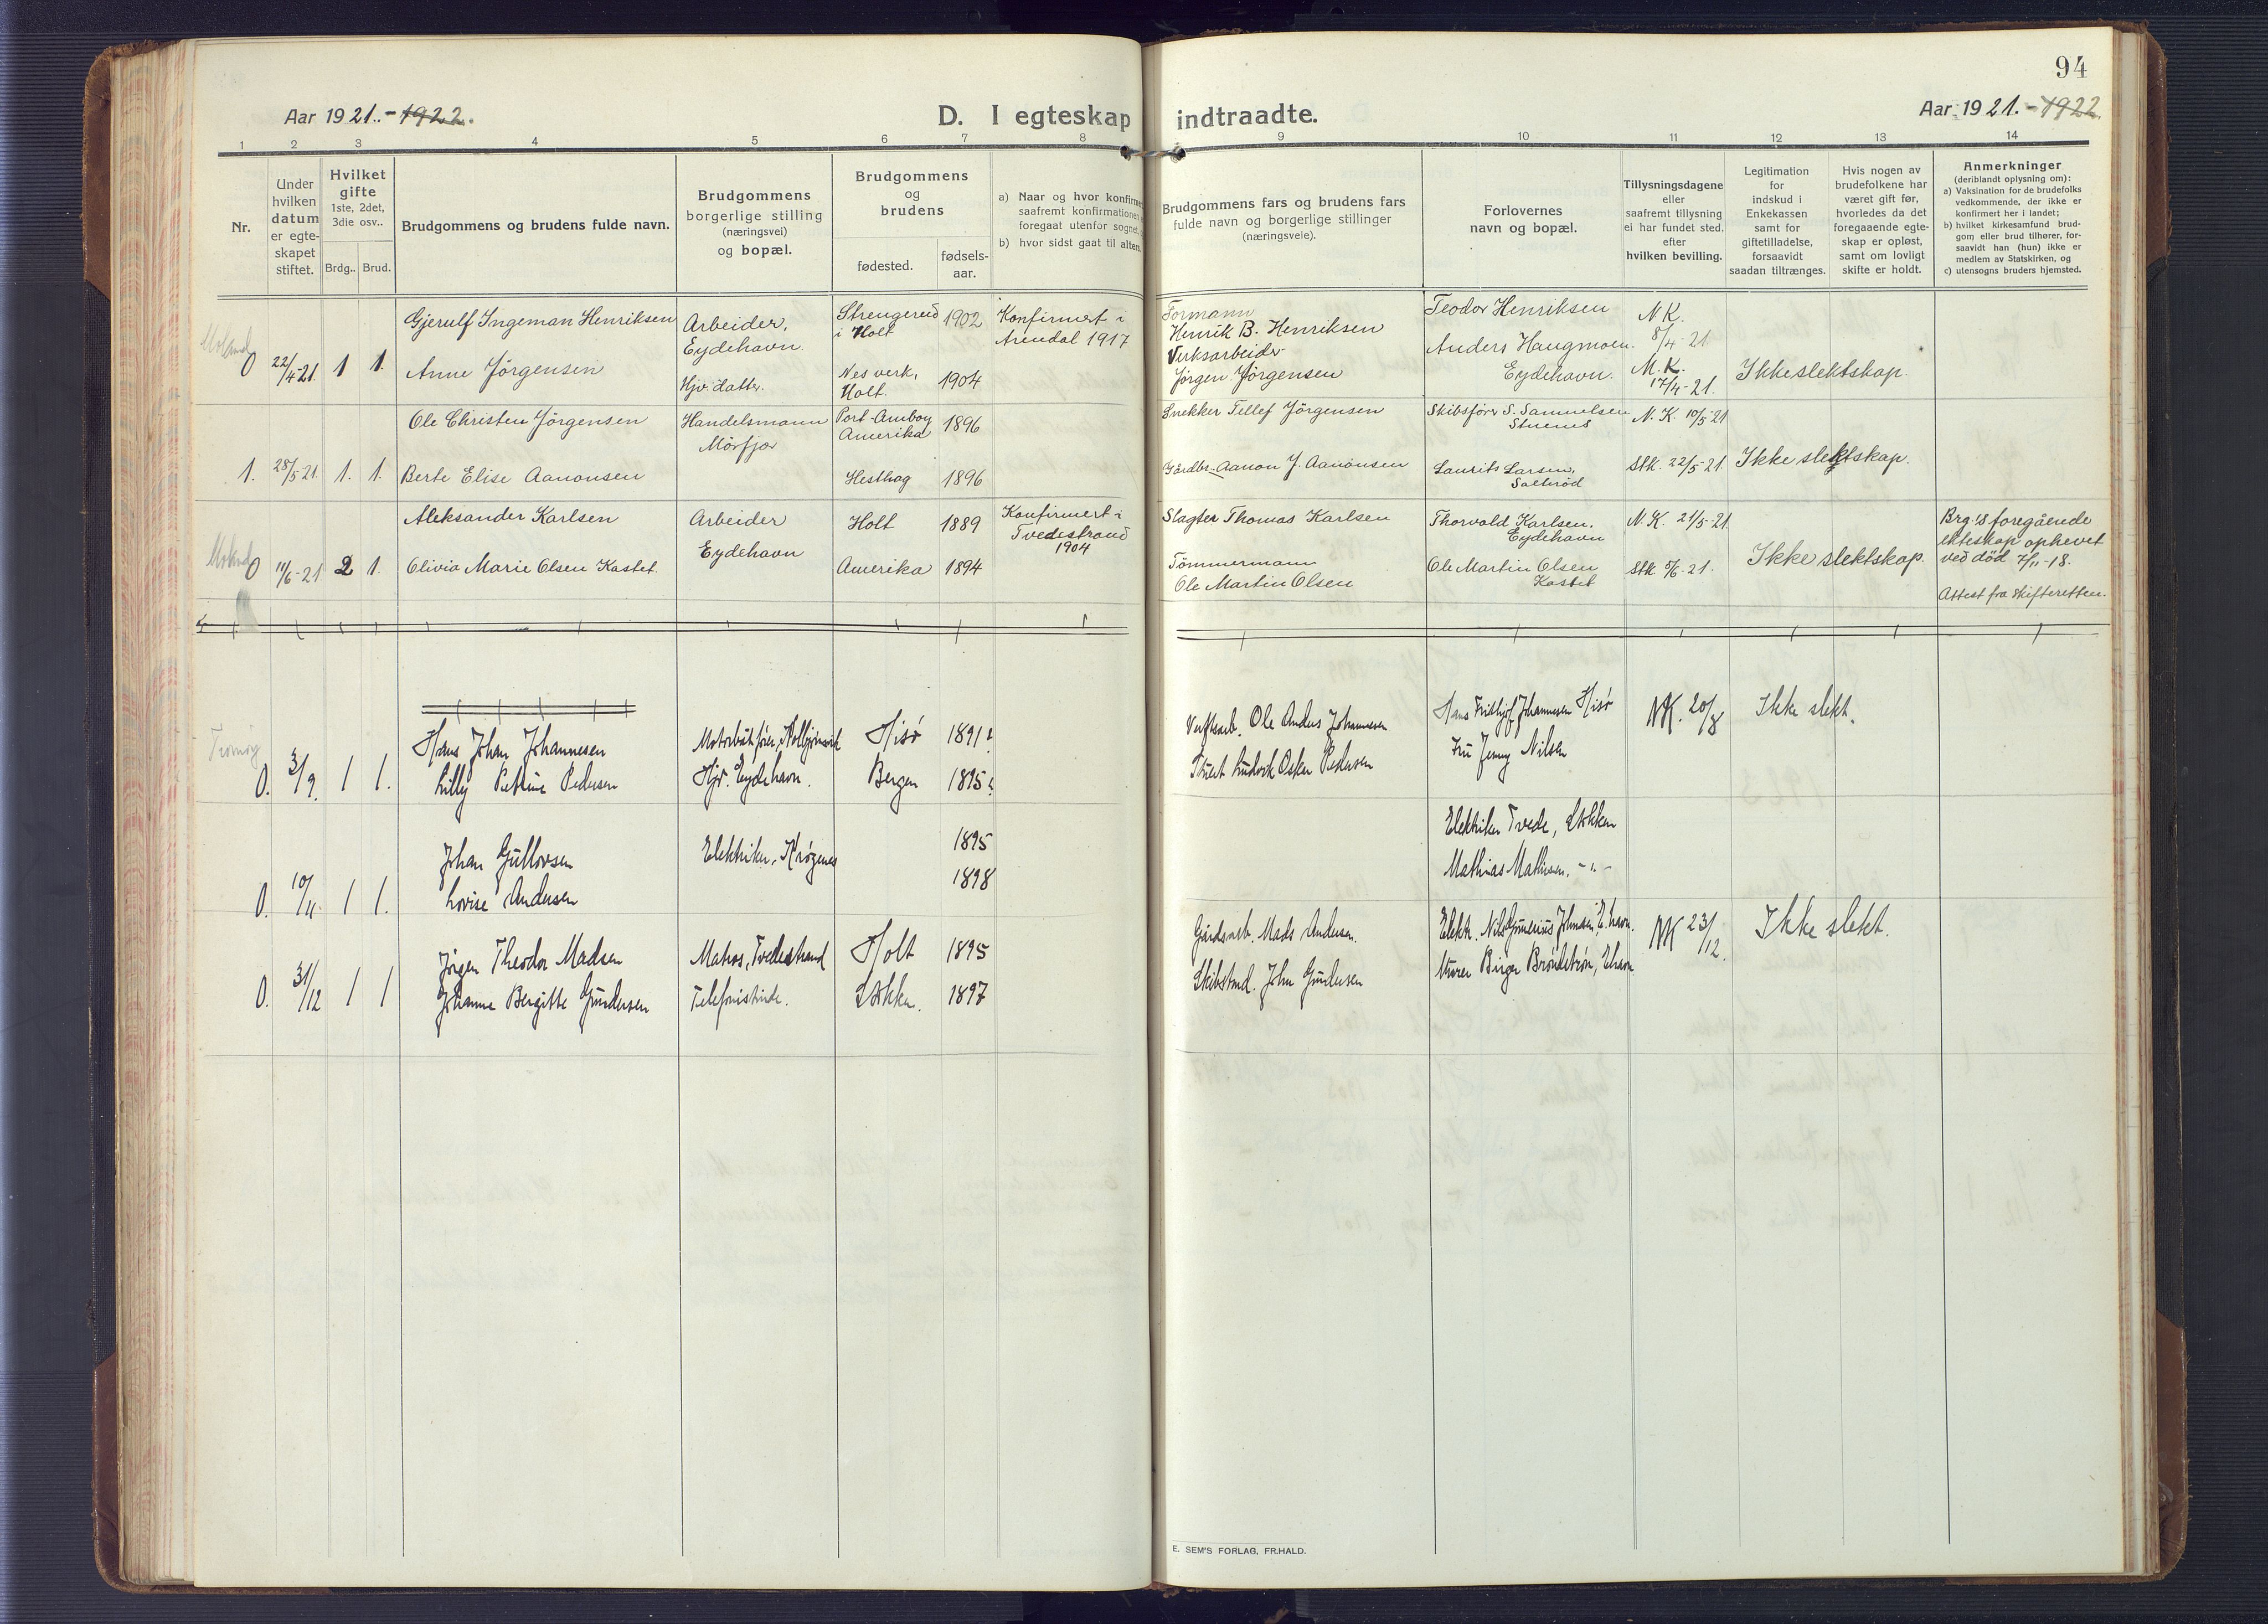 94
Aar 1921.-1922.
D. I egteskap indtraadte.
Aar 1921.-1922.
1 2 3 4 5 6 7 8 9 10 11 12 13 14
Nr.
Under
hvilken
datum
er egte-
skapet
stiftet.
Hvilket
gifte
1ste, 2det,
3die osv..
Brdg.. Brud.
Brudgommens og brudens fulde navn.
Brudgommens
borgerlige stilling
(næringsvei)
og bopæl.
Brudgommens
og
brudens
fødested.
fødsels-
aar.
a) Naar og hvor konfirme
saafremt konfirmationen
foregaat utenfor sognet,
b) hvor sidst gaat til alters.
Brudgommens fars og brudens fars
fulde navn og borgerlige stillinger
(næringsveie).
Forlovernes
navn og bopæl.
Tillysningsdagene
eller
saafremt tillysning
ei har fundet sted,
efter
hvilken bevilling.
Legitimation
for
indskud i
Enkekassen
samt for
giftetilladelse,
forsaavidt
saadan tiltrænges.
Hvis nogen av
brudefolkene har
været gift før,
hvorledes da det
foregaaende egte-
skap er opløst,
samt om lovligt
skifte er holdt.
Anmerkninger
(deriblandt oplysning om):
a) Vaksination for de brudefolks
vedkommende, der ikke er
konfirmert her i landet;
b) hvilket kirkesamfund brud-
gom eller brud tilhører, for-
saavidt han (hun) ikke er
medlem av Statskirken, og
c) utensogns bruders hjemsted.
Moland
0 22/4-21. 1 1.
Gjerulf Ingeman Henriksen
Anne Jörgensen
Arbeider,
Eydehavn.
Hjv. datter.
Strengereid
i Holt
1902
Nes verk,
Holt.
1904
Konfirmert i
Arendal 1917
Formann
Henrik B. Henriksen
Verksarbeider
Jörgen Jörgensen
Teodor Henriksen
Anders Haugmoen.
Eydehavn.
N.K.
8/4-21
M.K.
17/4-21.
Ikke slektskap.
1. 28/5 21. 1. 1.
Ole Christen Jörgensen
Berte Elise Aanonsen
Handelsmann
Mörfjær
Port-Amboy
Amerika
1896
Hesthag 1896
Snekker Tellef Jörgensen
Gårdbr. Aanon J. Aanonsen
Skibsförer S. Samuelsen
Stuenes
Laurits Larsen,
Salteröd
N. K. 10/5-21
Stk. 22/5-21.
Ikke slektskap.
Moland
0 11/6-21 2 1.
Aleksander Karlsen
Olivia Marie Olsen Kastet.
Arbeider
Eydehavn
Holt 1889
Amerika 1894
Konfirmert i
Tvedestrand
1904
Slagter Thomas Karlsen
Tömmermann
Ole Martin Olsen
Thorvald Karlsen.
Eydehavn
Ole Martin Olsen
Kastet
N. K. 21/5-21.
Stk. 5/6-21.
Ikke slektskap.
Brg.'s foregående
ekteskap ophevet
ved död 7/11-18.
Attest fra skifteretten.
Tromöy
0. 3/9. 1 1.
Hans Johan Johannesen
Lilly Petrine Pedersen
Motorbåtförer, Kolbjörnsvik
Hjv. Eydehavn.
Hisö 1891
Bergen 1895
Verftsarb. Ole Anders Johannesen
Ludvik Oskar Pedersen
Hans Fridthjof Johannesen Hisö
Fru Jenny Nilsen
NK. 20/8
Ikke slekt.
0. 10/11. 1 1.
Johan Gullovsen
Lovise Andersen
Elektriker, Krögenes
1895
1898
Elektriker Tvede, Stokken
Mathias Mathisen, -"-
0. 31/12 1 1
Jörgen Theodor Madsen
Johanne Bergitte Gundersen
Matros, Tvedestrand
Telefonistinde.
Holt 1895
Stokken. 1897
Gårdsarb. Mads Andersen.
Skibstmd. John Gundersen
Elektr. Nils Gunerius Johnsen, E.havn.
Murer Birger Bröndström, E.havn
NK 23/12.
Ikke slekt.
E. SEM'S FORLAG, FR.HALD.